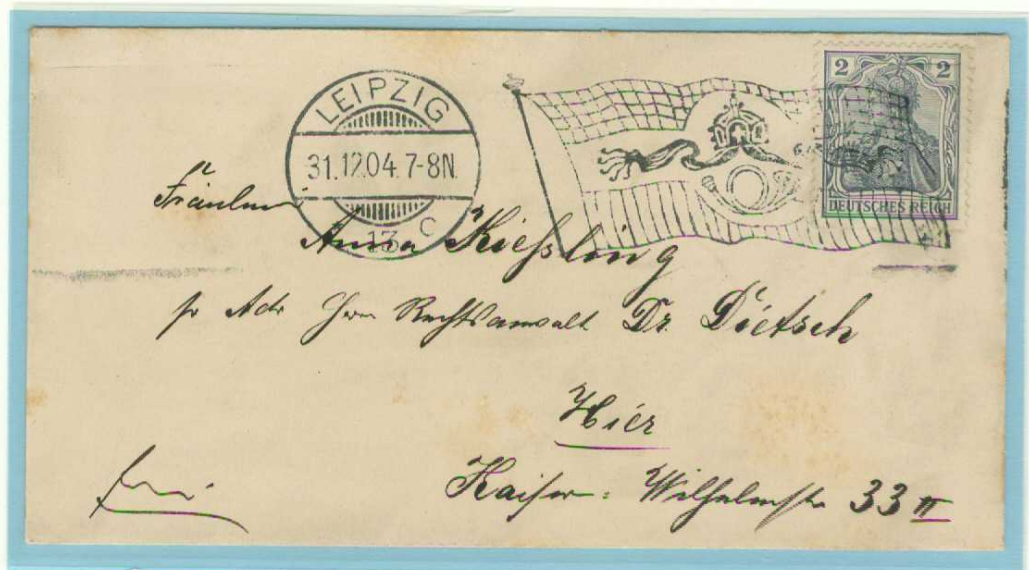 LEIPZIG
31.12.04.7-8N.
13 C
2 2
DEUTSCHES REICH
Fräulein
Anna Kießling
pr Adr Herrn Rechtsanwalt Dr. Dietsch
Hier
Kaiser-Wilhelmstr 33 II
frei.